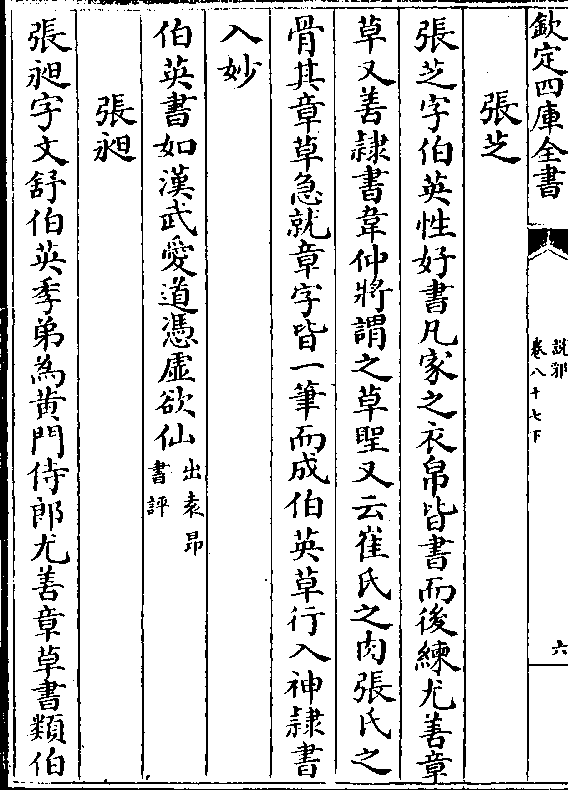 欽定四庫全書
說郛
卷八十七下
六
張芝
張芝字伯英性好書凡家之衣帛皆書而後練尤善章
草又善隷書韋仲將謂之草聖又云崔氏之肉張氏之
骨其章草急就章字皆一筆而成伯英草行入神隷書
入妙
伯英書如漢武愛道憑虛欲仙出袁昂
書評
張昶
張昶字文舒伯英季弟為黄門侍郎尤善章草書類伯